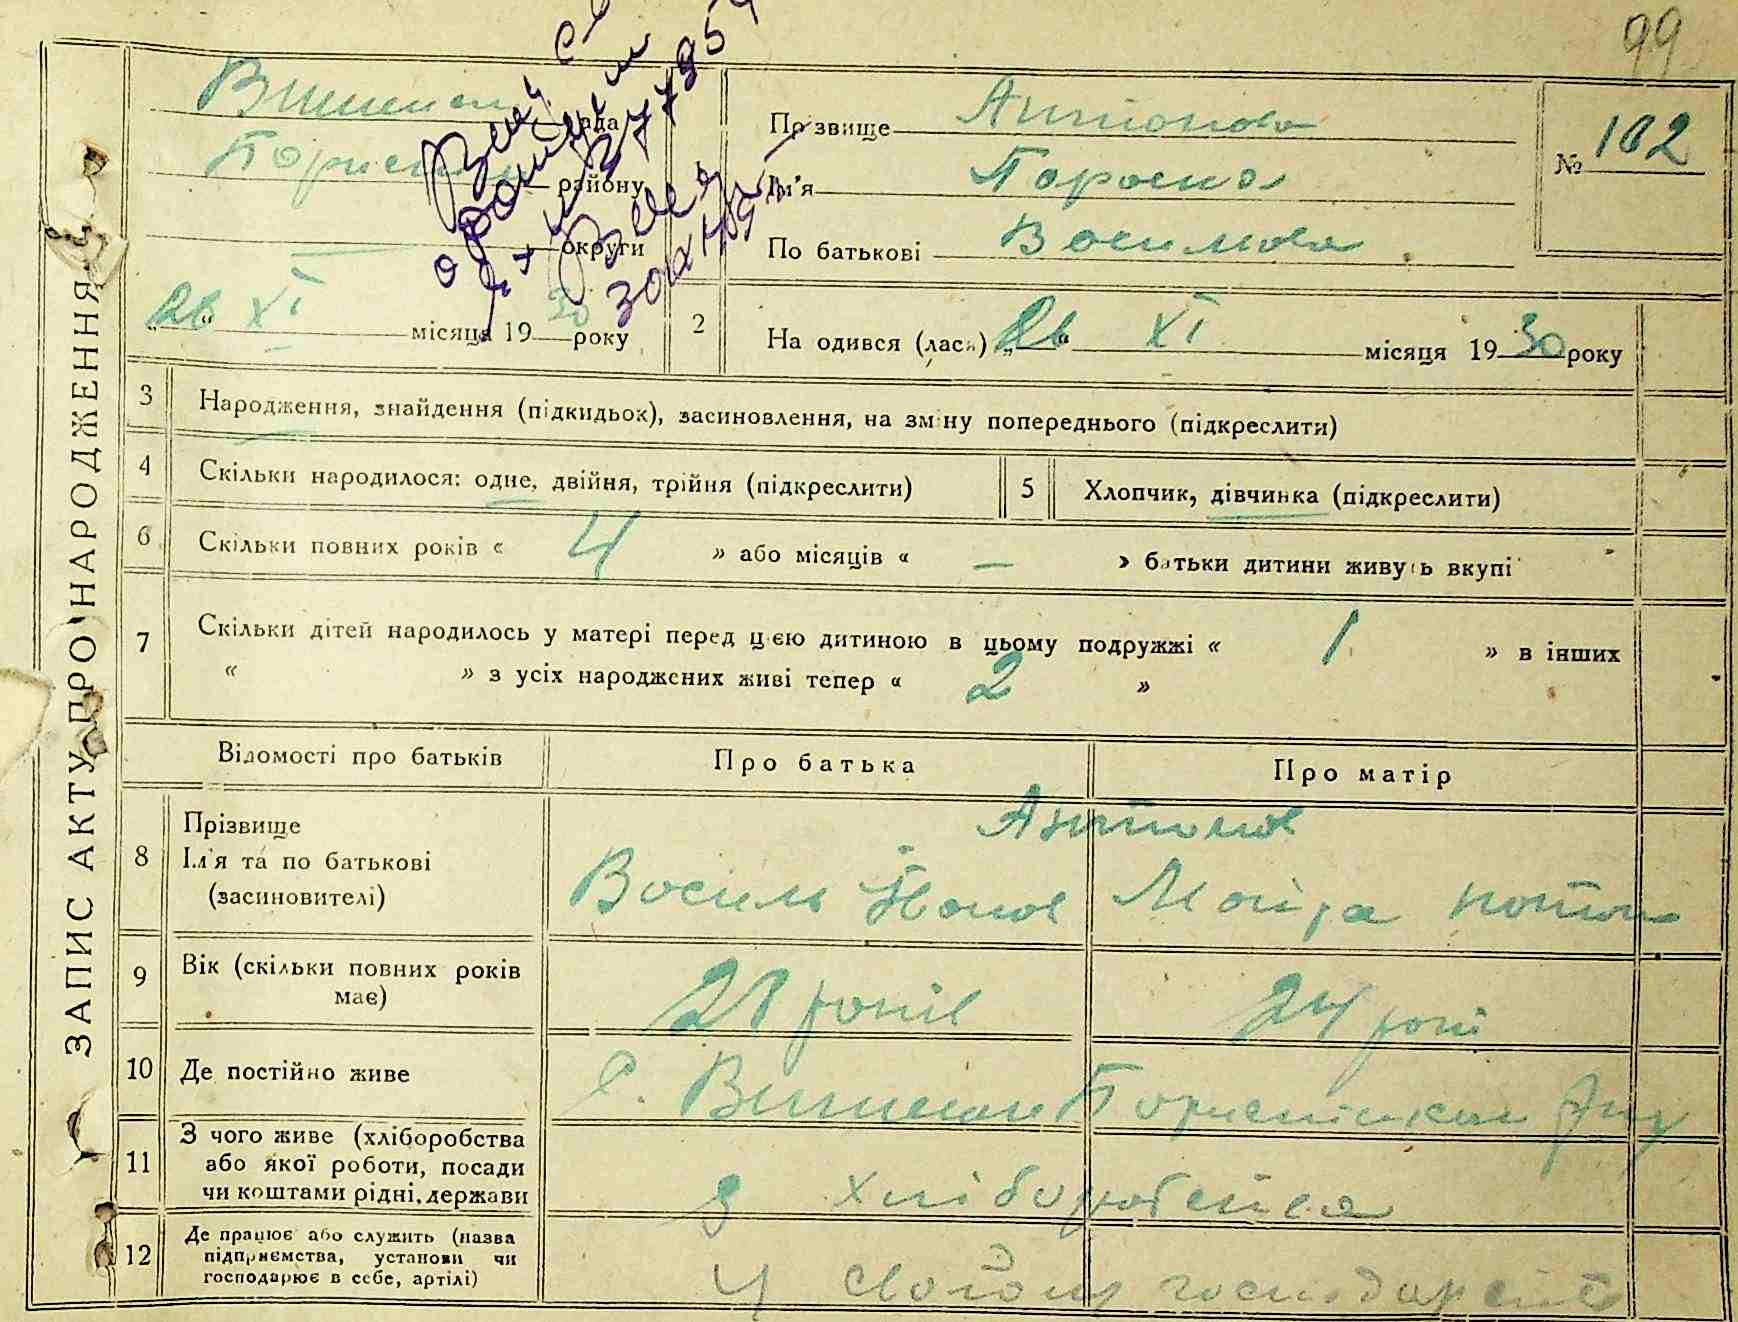 99
ЗАПИС АКТУ ПРО НАРОДЖЕННЯ
рада
району
округи
„26“ XI місяця 1930 року
Прізвище Антонова
Ім'я Пороска
По батькові Восилова
№ 102
2 На одився (лася) „26“ XI місяця 1930 року
3 Народження, знайдення (підкидьок), засиновлення, на зміну попереднього (підкреслити)
4 Скільки народилося: одне, двійня, трійня (підкреслити)
5 Хлопчик, дівчинка (підкреслити)
6 Скільки повних років « 4 » або місяців « — » батьки дитини живуть вкупі
7 Скільки дітей народилось у матері перед цією дитиною в цьому подружжі « 1 » в інших
« » з усіх народжених живі тепер « 2 »
Відомості про батьків Про батька Про матір
8 Прізвище Антонов
Ім'я та по батькові
(засиновителі) Восиль
9 Вік (скільки повних років має) 28 років 24 рокі
10 Де постійно живе с.
11 З чого живе (хліборобства
або якої роботи, посади
чи коштами рідні, держави з хліборобства
12 Де працює або служить (назва
підприємства, установи чи
господарює в себе, артілі) у свойому господарстві